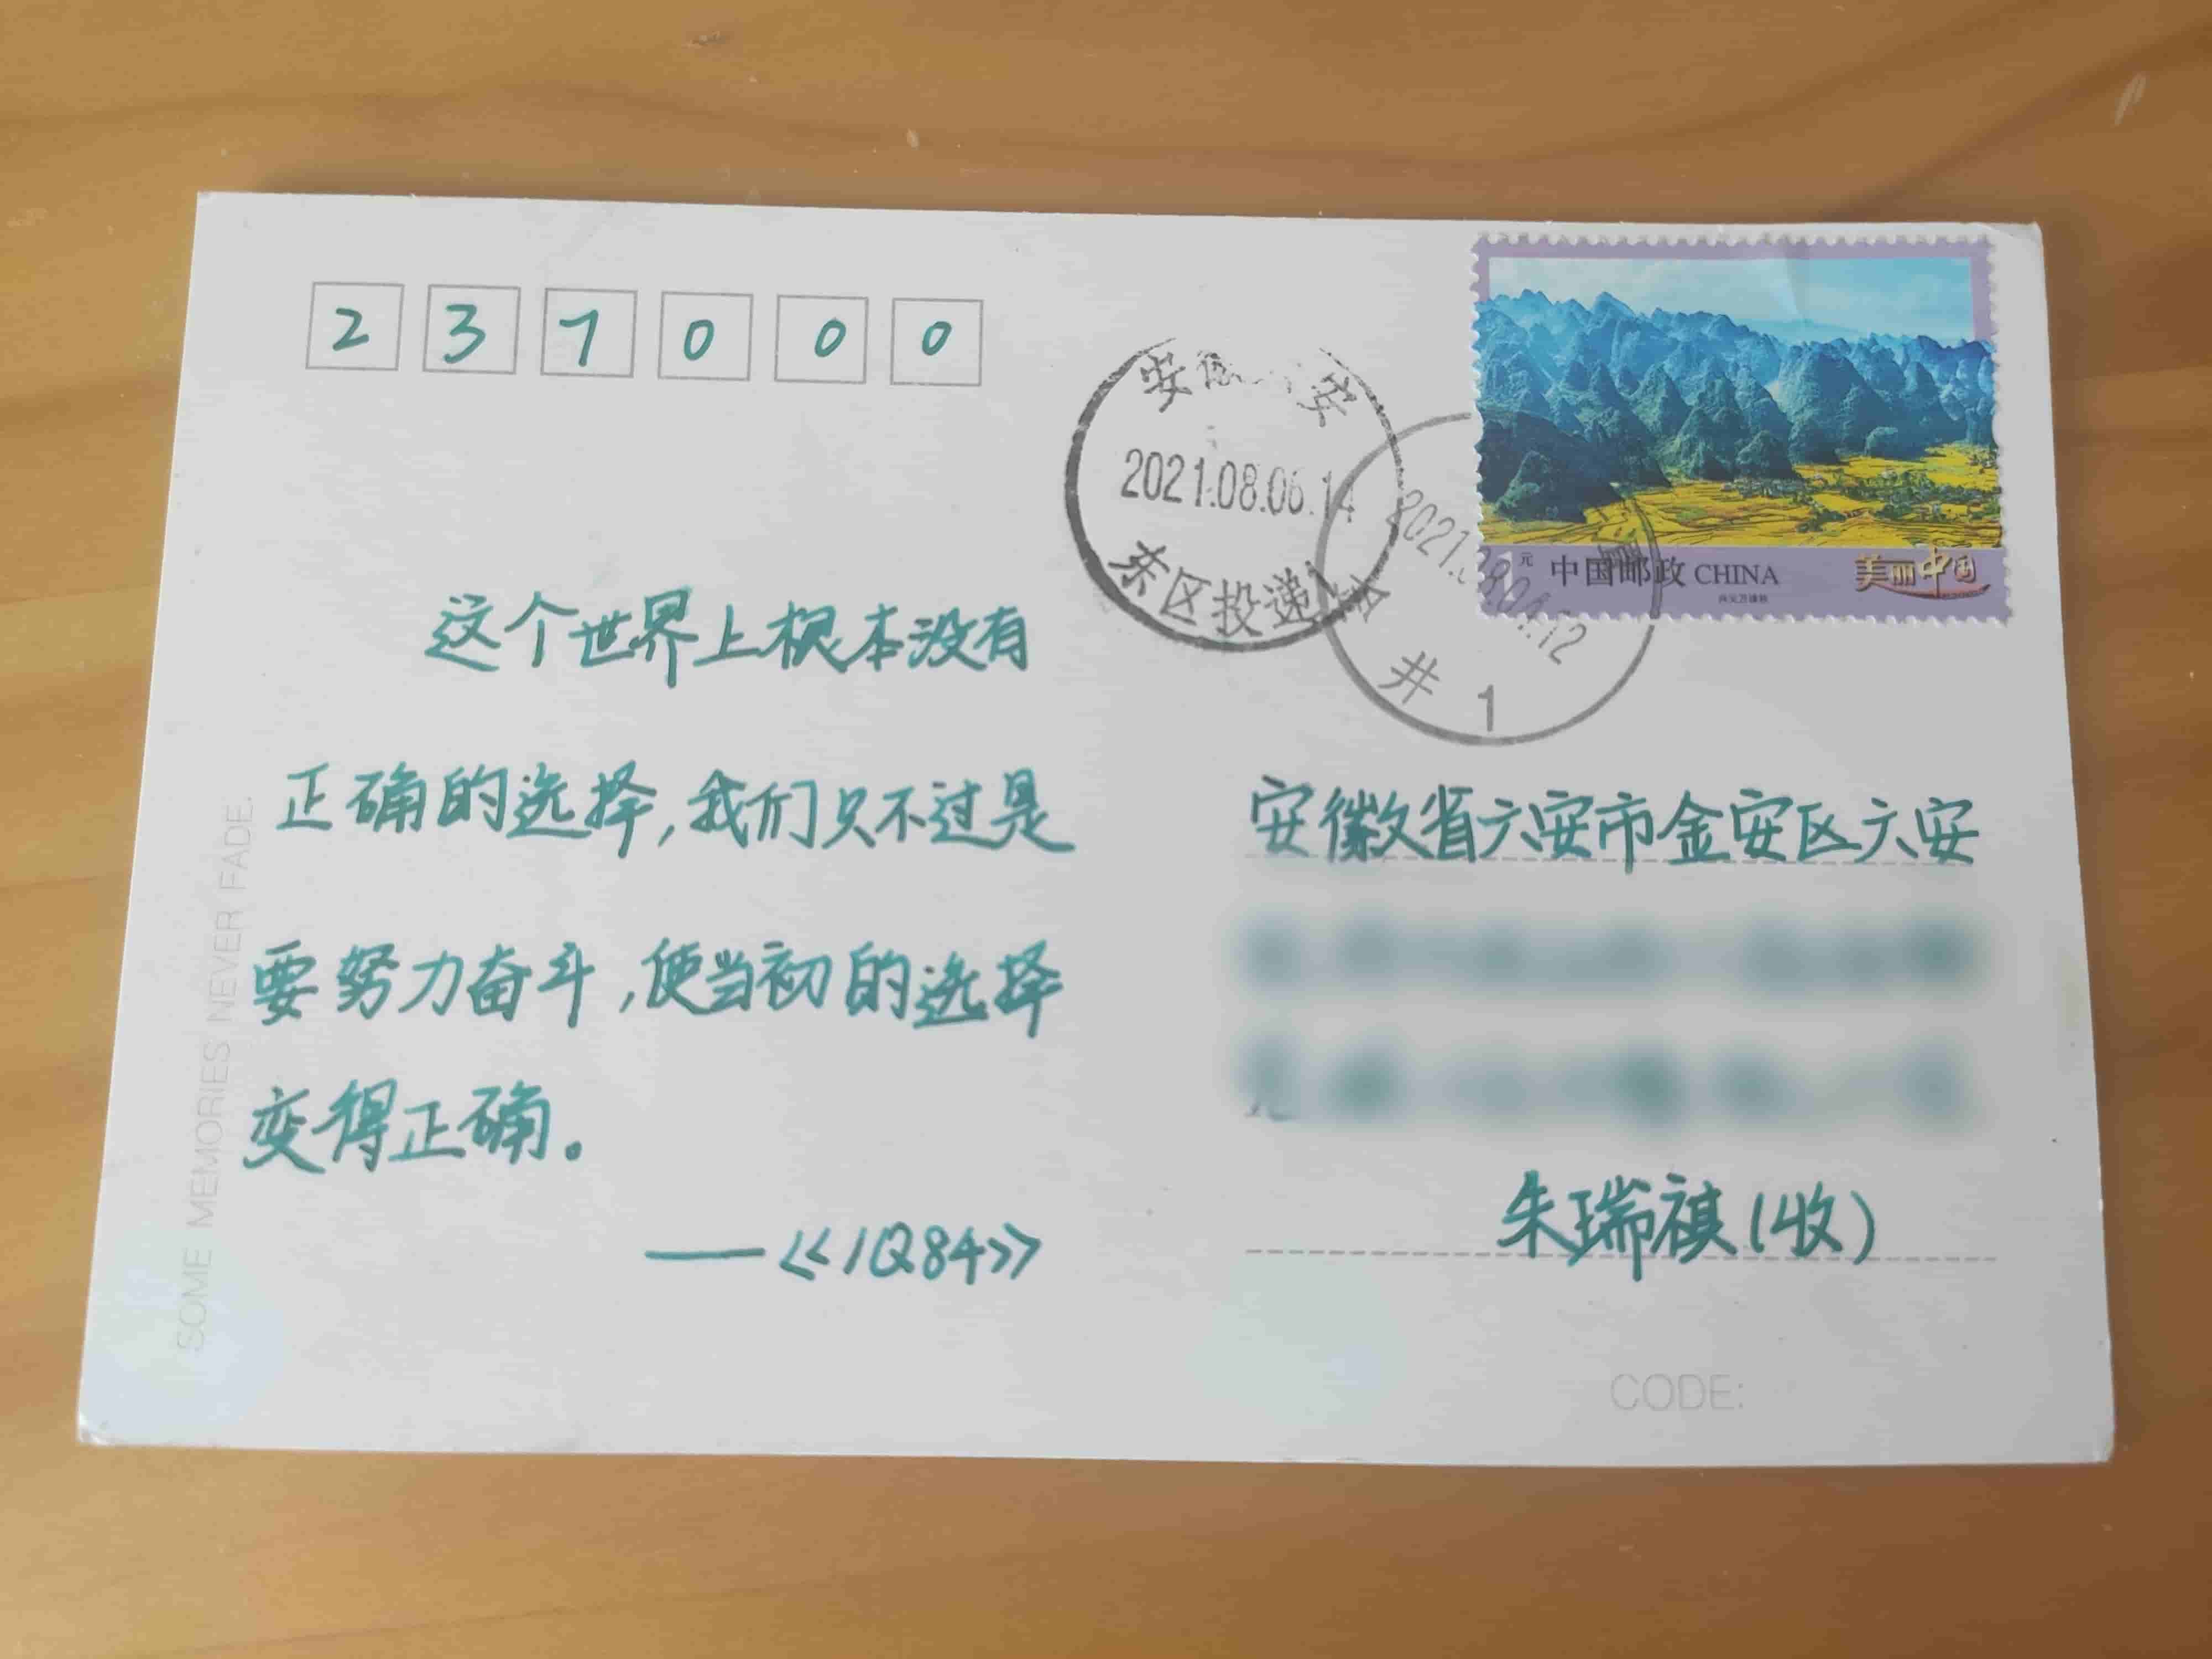 2 3 7 0 0 0
这个世界上根本没有
正确的选择,我们只不过是
要努力奋斗,使当初的选择
变得正确。
——《1Q84》
SOME MEMORIES NEVER FADE.
2021.08.06.14
东区投递
2021.08.04.12
井 1
1元 中国邮政 CHINA
美丽中国
安徽省六安市金安区六安
朱瑞祺(收)
CODE: